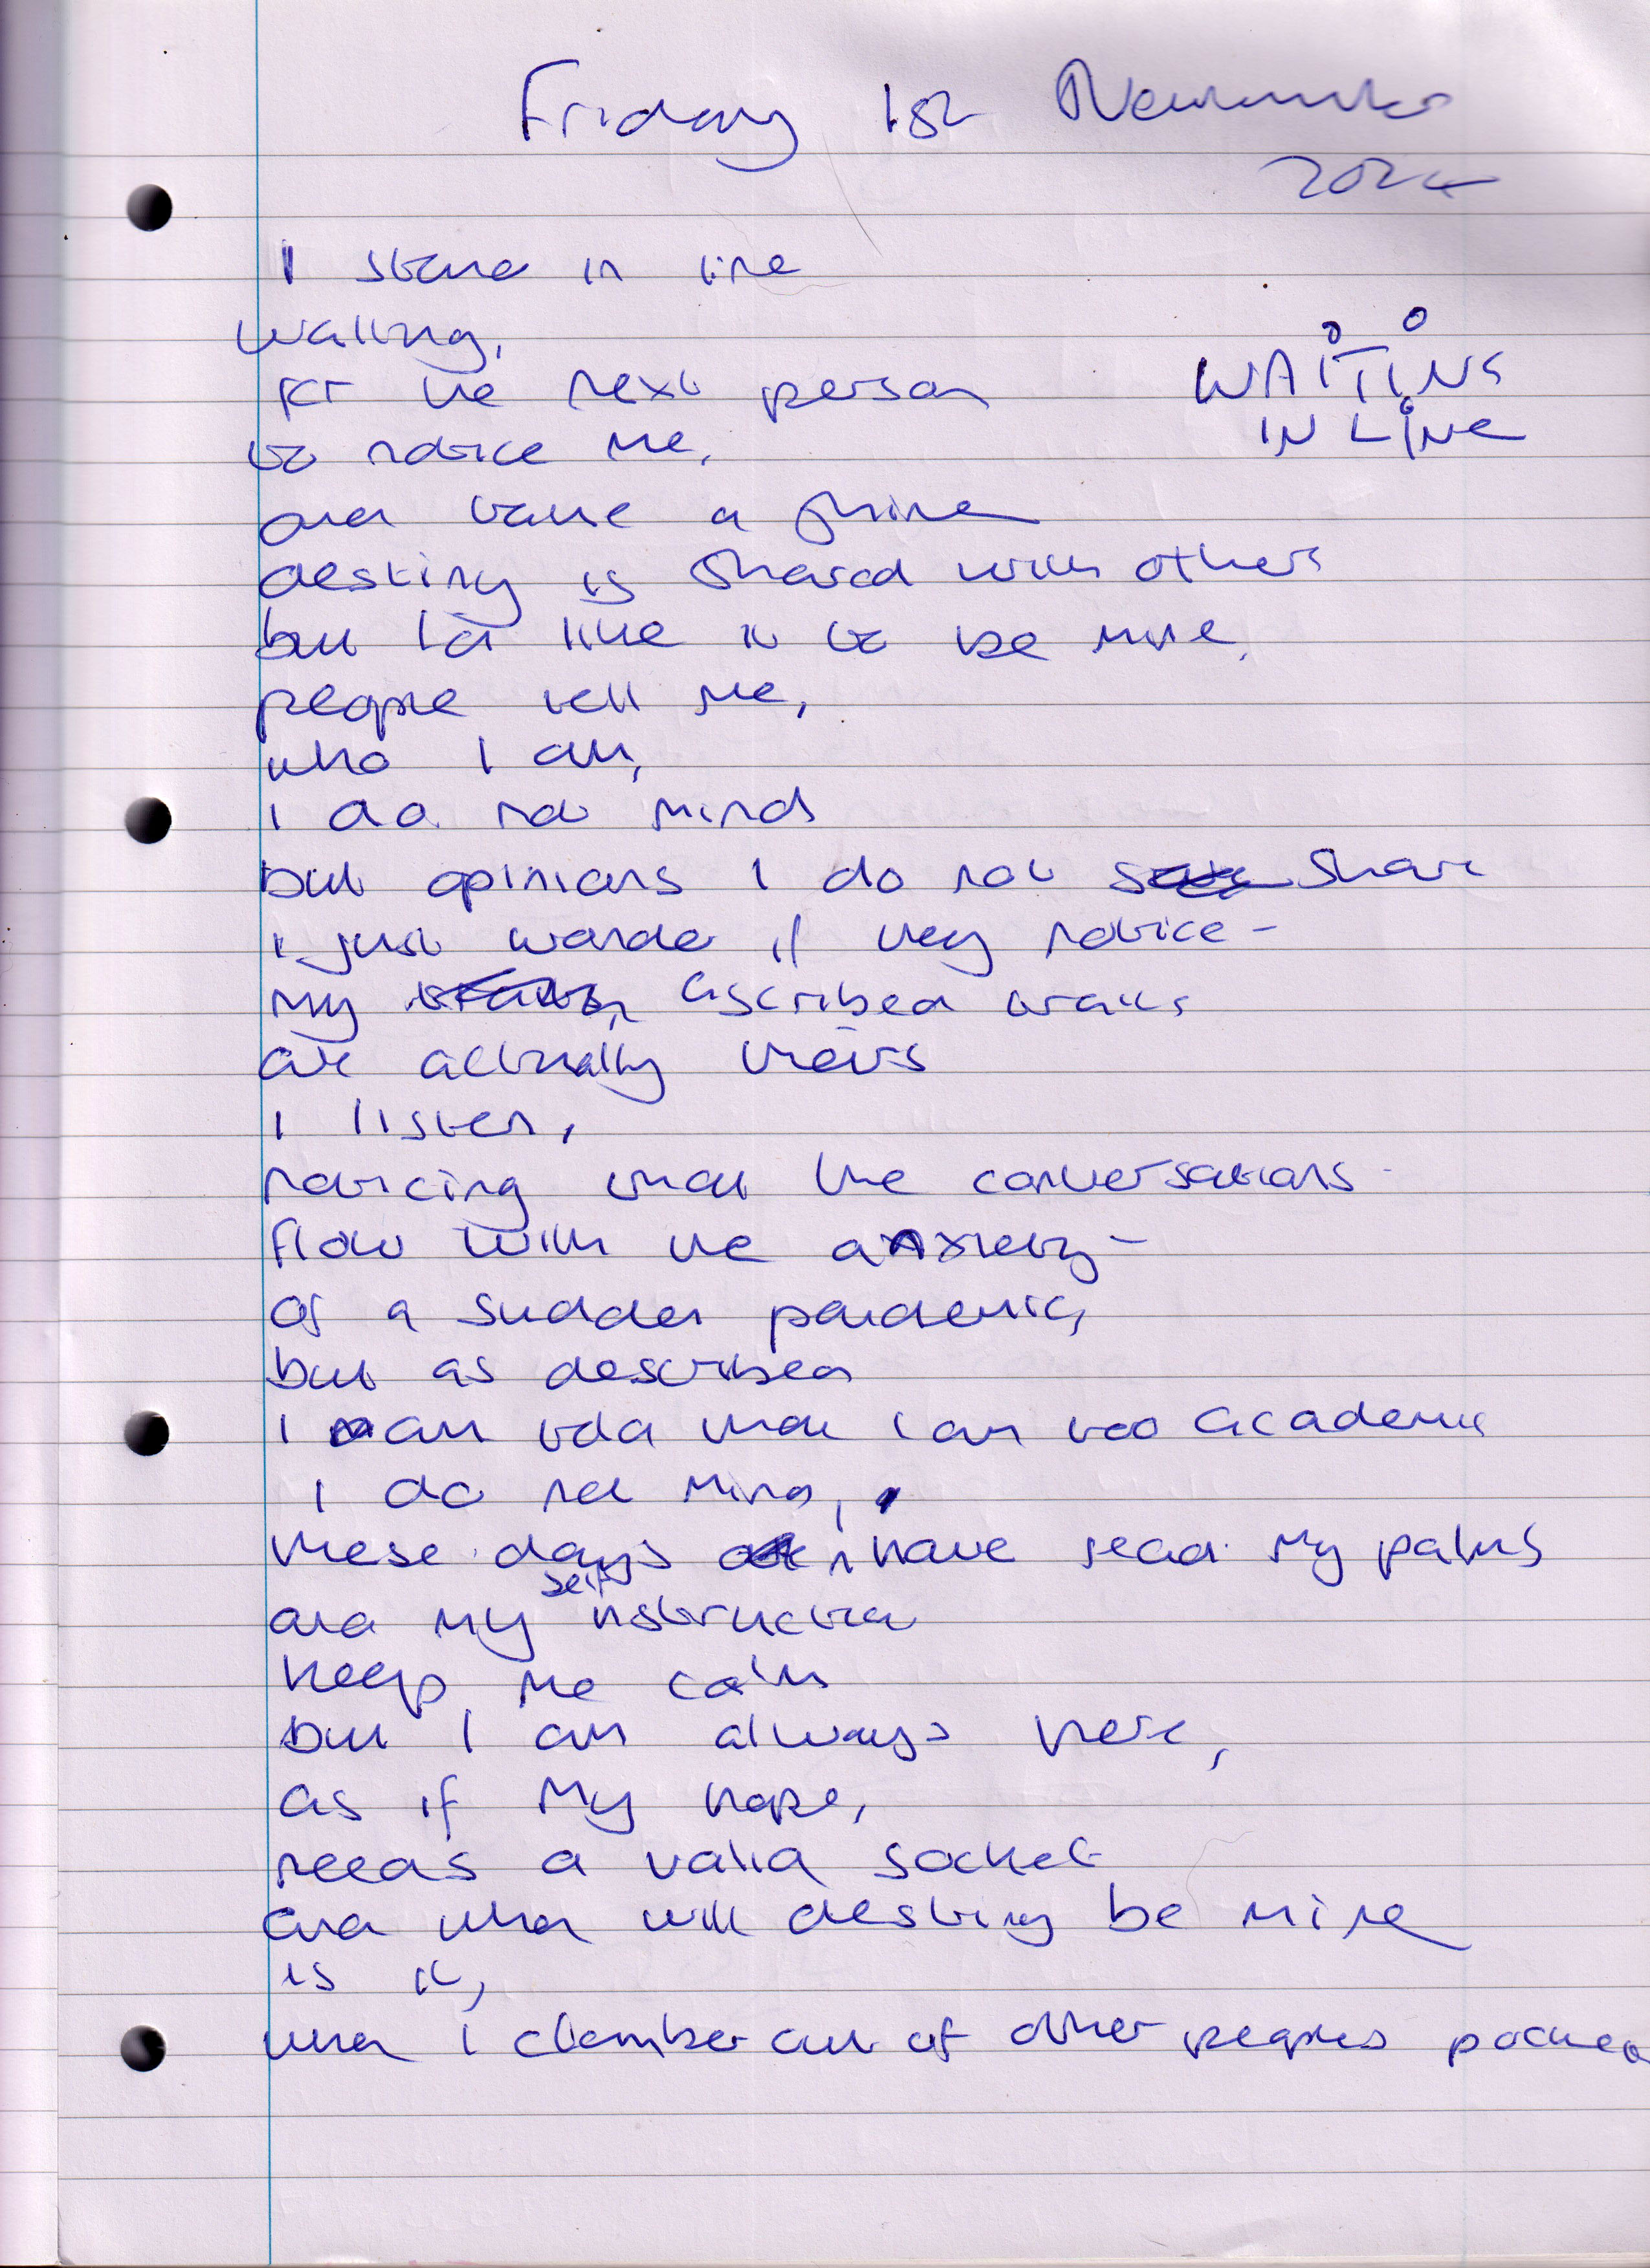 Friday 1st November
2024
I stand in line
waiting,
for the next person
WAITING
IN LINE
to notice me,
and take a shine
destiny is shared with others
but I'd like it to be mine,
people tell me,
who I am,
I do not mind
but opinions I do not share
I just wonder if they notice -
my ascribed traits
are actually theirs
I listen,
noticing that the conversations
flow with the anxiety -
of a sudden pandemic,
but as described
I am told that I am too academic
I do not mind,
these days I have read my palms
and my self instruction
keep me calm
but I am always here,
as if my hope,
needs a valid socket
and when will destiny be mine
is it,
when I clamber out of other peoples pocket